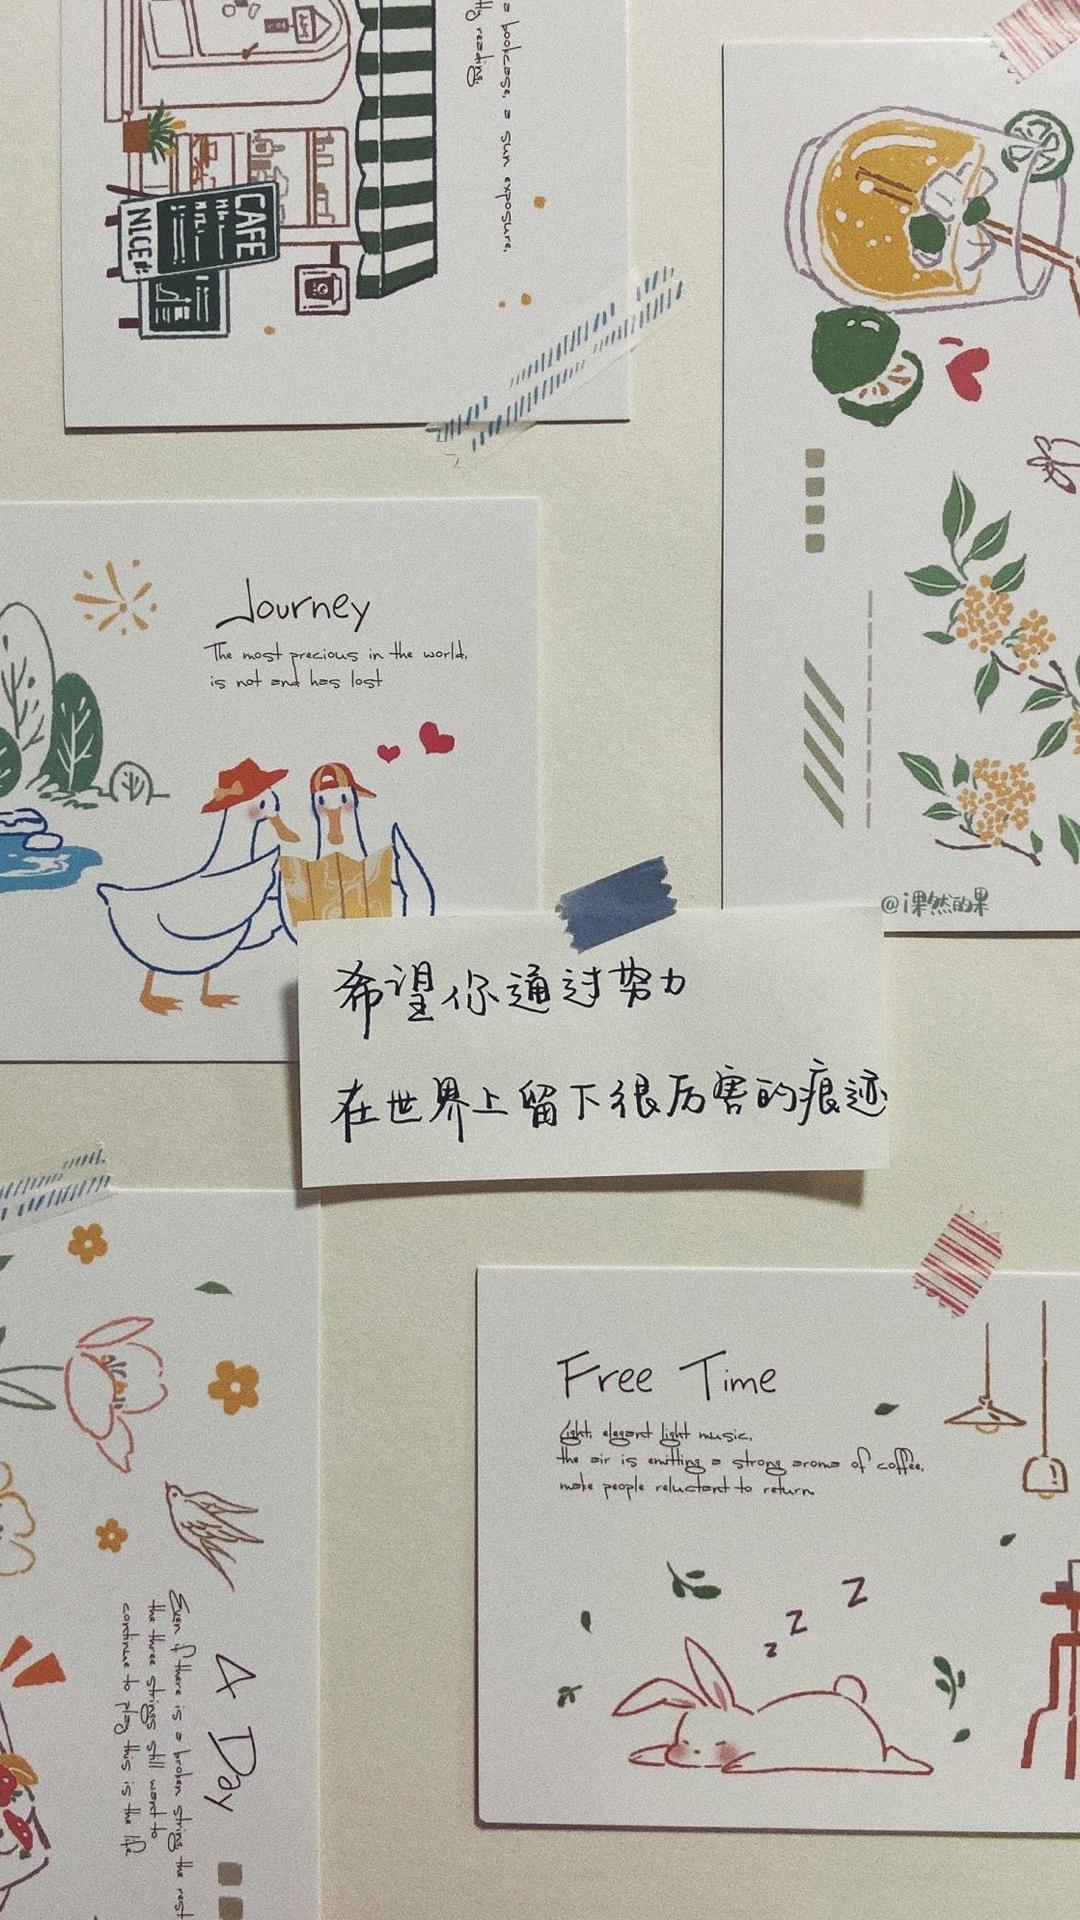 a bookcase, a sun exposure,
reading.
CAFE
NICE
Journey
The most precious in the world,
is not and has lost
@i果然的果
希望你通过努力
在世界上留下很厉害的痕迹
Free Time
Light, elegant light music,
the air is emitting a strong aroma of coffee,
make people reluctant to return
Z
Z
Z
A Day
Even if there is a broken string, the rest
the three strings still want to
continue to play this is the life